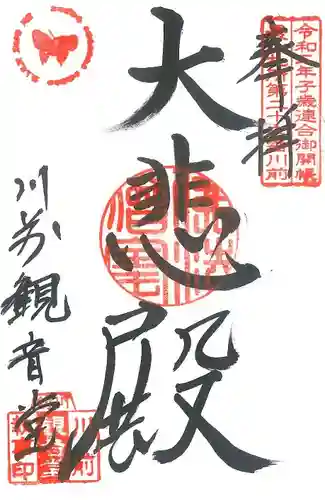 奉拝
令和二年子歳連合御開帳
第二十
川前
大悲殿
川前観音堂
川前
観音堂
印